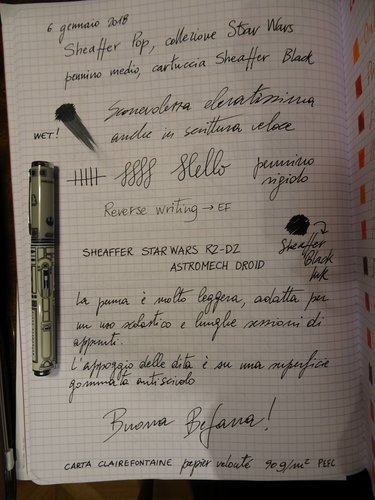 6 gennaio 2018
Sheaffer Pop, collezione Star Wars
pennino medio, cartuccia Sheaffer Black
Scorrevolezza elevatissima
anche in scrittura veloce
WET!
Hello
pennino
rigido
Reverse writing → EF
Sheaffer
Black
Ink
SHEAFFER STAR WARS R2-D2
ASTROMECH DROID
La penna è molto leggera, adatta per
un uso scolastico e lunghe sessioni di
appunti.
L'appoggio delle dita è su una superficie
gommata antiscivolo
Buona Befana!
CARTA CLAIREFONTAINE papier velouté 90g/m² PEFC